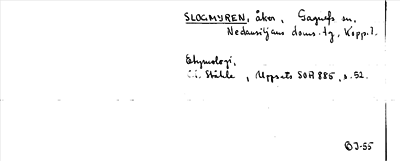 SLOGMYREN, åker, Gagnefs sn.
Nedansiljans doms. tg, Kopp. l.
Etymologi.
C.I. Ståhle, Uppsats SOA 885, s. 52.
BJ-55